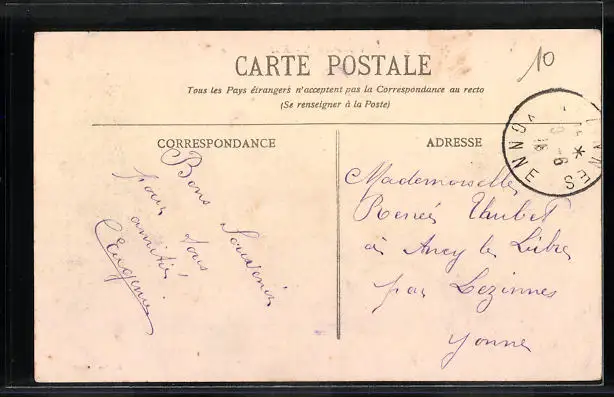 10
CARTE POSTALE
Tous les Pays étrangers n'acceptent pas la Correspondance au recto
(Se renseigner à la Poste)
CORRESPONDANCE
Bons Souvenir
pour tous
amitié
Eugénie
ADRESSE
Mademoiselle
Renée
à Ancy le Libre
par Lezinnes
Yonne
YONNE